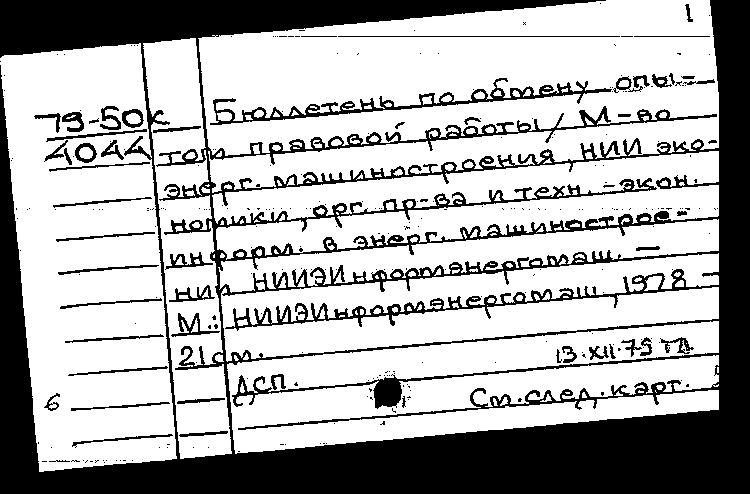 1
79-50к Бюллетень по обмену опы-
4044 том правовой работы / М-во
энерг. машиностроения, НИИ эко-
номики, орг. пр-ва и техн.-экон.
информ. в энерг. машинострое-
нии НИИЭИнформэнергомаш. —
М.: НИИЭИнформэнергомаш, 1978. —
21 см.
13.XII.79
ДСП.
6 См. след. карт.